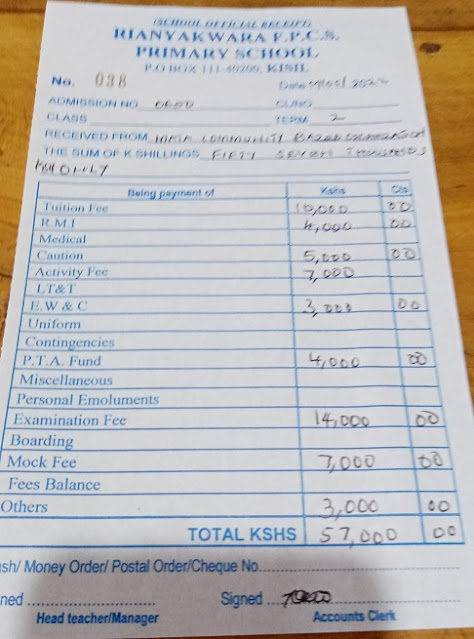 (SCHOOL OFFICIAL RECEIPT)
RIANYAKWARA F.P.C.S.
PRIMARY SCHOOL
P.O BOX 111-40200, KISII.
No. 038 Date 2022
ADMISSION NO
CLASS TERM 2
RECEIVED FROM COMMUNITY BASED ORGANISATION
THE SUM OF K SHILLINGS FIFTY SEVEN THOUSANDS
KSH ONLY
Being payment of Kshs Cts
Tuition Fee 10,000 00
R.M.I 4,000 00
Medical
Caution 5,000 00
Activity Fee 7,000
LT&T
E.W & C 3,000 00
Uniform
Contingencies
P.T.A. Fund 4,000 00
Miscellaneous
Personal Emoluments
Examination Fee 14,000 00
Boarding
Mock Fee 7,000 00
Fees Balance
Others 3,000 00
TOTAL KSHS 57,000 00
ash/ Money Order/ Postal Order/Cheque No.
ned Signed
Head teacher/Manager Accounts Clerk